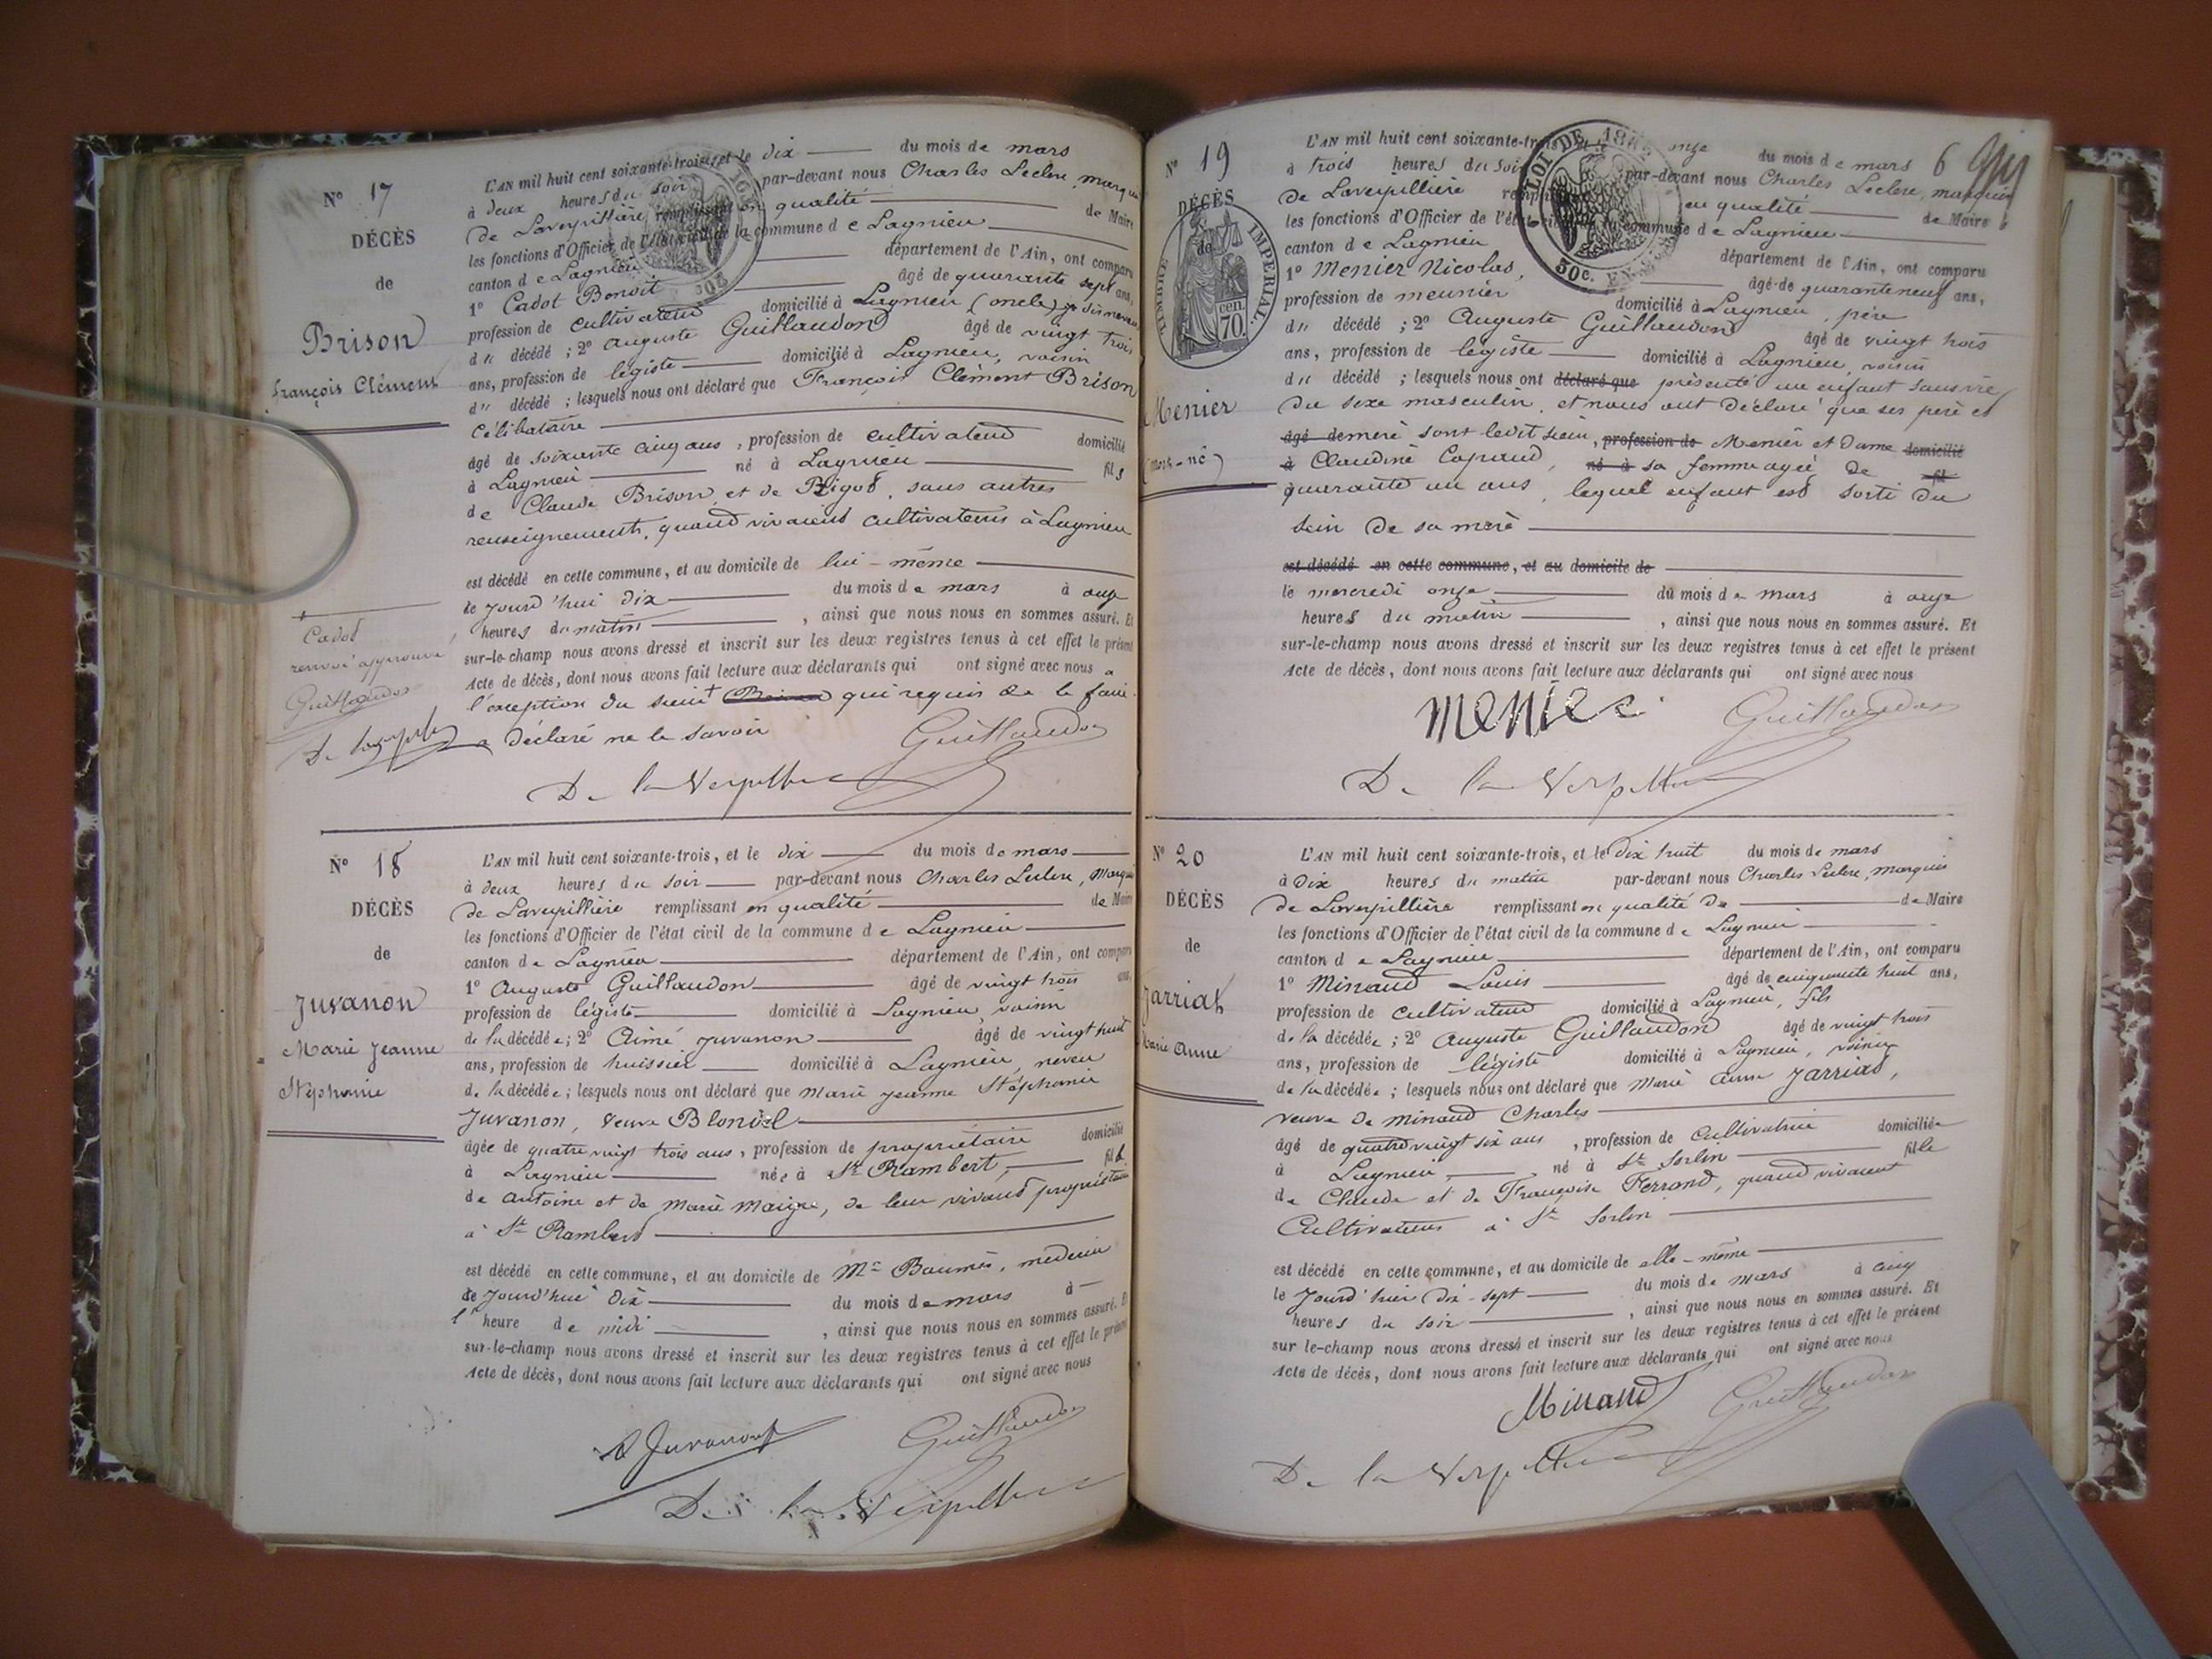 N° 17
DÉCÈS
de
Brison
François Clément
L'AN mil huit cent soixante-trois, et le dix du mois de mars
à deux heures du soir par-devant nous Charles Leclerc, marquis
de Laverpillière remplissant en qualité de Maire
les fonctions d'Officier de l'état civil de la commune de Lagnieu
canton de Lagnieu département de l'Ain, ont comparu
1° Cadot Benoit âgé de quarante sept ans,
profession de cultivateur domicilié à Lagnieu (oncle)
du décédé ; 2° Auguste Guillaudon âgé de vingt trois
ans, profession de légiste domicilié à Lagnieu, voisin
du décédé ; lesquels nous ont déclaré que François Clément Brison
Célibataire
âgé de soixante cinq ans, profession de cultivateur domicilié
à Lagnieu né à Lagnieu fils
de Claude Brison et de Rigot, sans autres
renseignements, quand vivaient cultivateurs à Lagnieu
est décédé en cette commune, et au domicile de lui-même
le jourd'hui dix du mois de mars à onze
heures du matin, ainsi que nous nous en sommes assuré. Et
sur-le-champ nous avons dressé et inscrit sur les deux registres tenus à cet effet le présent
Acte de décès, dont nous avons fait lecture aux déclarants qui ont signé avec nous a
l'exception du sieur + qui requis de le faire
a déclaré ne le savoir
+
Cadot
renvoi approuvé
Guillaudon
Guillaudon
De la Verpillière
N° 18
DÉCÈS
de
Juvanon
Marie Jeanne
Stéphanie
L'AN mil huit cent soixante-trois, et le dix du mois de mars
à deux heures du soir par-devant nous Charles Leclerc, Marquis
de Laverpillière remplissant en qualité de Maire
les fonctions d'Officier de l'état civil de la commune de Lagnieu
canton de Lagnieu département de l'Ain, ont comparu
1° Auguste Guillaudon âgé de vingt trois ans,
profession de légiste domicilié à Lagnieu, voisin
de la décédée ; 2° Aimé Juvanon âgé de vingt huit
ans, profession de huissier domicilié à Lagnieu, neveu
de la décédée ; lesquels nous ont déclaré que Marie Jeanne Stéphanie
Juvanon, veuve Blondel
âgée de quatre vingt trois ans, profession de propriétaire domicilié
à Lagnieu née à St Rambert,
de Antoine et de Marie Maigre, de leur vivant propriétaires
à St Rambert
est décédé en cette commune, et au domicile de Mr Baumès, médecin
le jourd'hui dix du mois de mars à
l'heure de midi, ainsi que nous nous en sommes assuré. Et
sur-le-champ nous avons dressé et inscrit sur les deux registres tenus à cet effet le présent
Acte de décès, dont nous avons fait lecture aux déclarants qui ont signé avec nous
A Juvanon Guillaudon
De la Verpillière
N° 19
DÉCÈS
de
TIMBRE IMPERIAL
70 cen
Menier
(mort-né)
LOI DE
30c. EN
6
L'AN mil huit cent soixante-trois, et le onze du mois de mars
à trois heures du soir par-devant nous Charles Leclerc, marquis
de Laverpillière remplissant en qualité de Maire
les fonctions d'Officier de l'état civil de la commune de Lagnieu
canton de Lagnieu département de l'Ain, ont comparu
1° Menier Nicolas, âgé de quarante neuf ans,
profession de meunier domicilié à Lagnieu, père
du décédé ; 2° Auguste Guillaudon âgé de vingt trois
ans, profession de légiste domicilié à Lagnieu, voisin
du décédé ; lesquels nous ont déclaré que présenté un enfant sans vie
du sexe masculin, et nous ont déclaré que ses père et
âgé de mère sont ledit sieur, profession de Menier et dame domicilié
à Claudine Copaud, né à sa femme agée de fil
quarante un ans, lequel enfant est sorti du
sein de sa mère
est décédé en cette commune, et au domicile de
le mercredi onze du mois de mars à onze
heures du matin, ainsi que nous nous en sommes assuré. Et
sur-le-champ nous avons dressé et inscrit sur les deux registres tenus à cet effet le présent
Acte de décès, dont nous avons fait lecture aux déclarants qui ont signé avec nous
Menier Guillaudon
De la Verpillière
N° 20
DÉCÈS
de
Jarriat
Marie Anne
L'AN mil huit cent soixante-trois, et le dix huit du mois de mars
à dix heures du matin par-devant nous Charles Leclerc, marquis
de Laverpillière remplissant en qualité de de Maire
les fonctions d'Officier de l'état civil de la commune de Lagnieu
canton de Lagnieu département de l'Ain, ont comparu
1° Minaud Louis âgé de cinquante huit ans,
profession de cultivateur domicilié à Lagnieu, fils
de la décédée ; 2° Auguste Guillaudon âgé de vingt trois
ans, profession de légiste domicilié à Lagnieu, voisin
de la décédée ; lesquels nous ont déclaré que Marie Anne Jarriat,
veuve de Minaud Charles
âgé de quatre vingt six ans, profession de Cultivatrice domiciliée
à Lagnieu, né à St Sorlin fille
de Claude et de Françoise Ferrand, quand vivaient
Cultivateurs à St Sorlin
est décédé en cette commune, et au domicile de elle-même
le jourd'hier dix-sept du mois de mars à cinq
heures du soir, ainsi que nous nous en sommes assuré. Et
sur le-champ nous avons dressé et inscrit sur les deux registres tenus à cet effet le présent
Acte de décès, dont nous avons fait lecture aux déclarants qui ont signé avec nous
Minaud Guillaudon
De la Verpillière